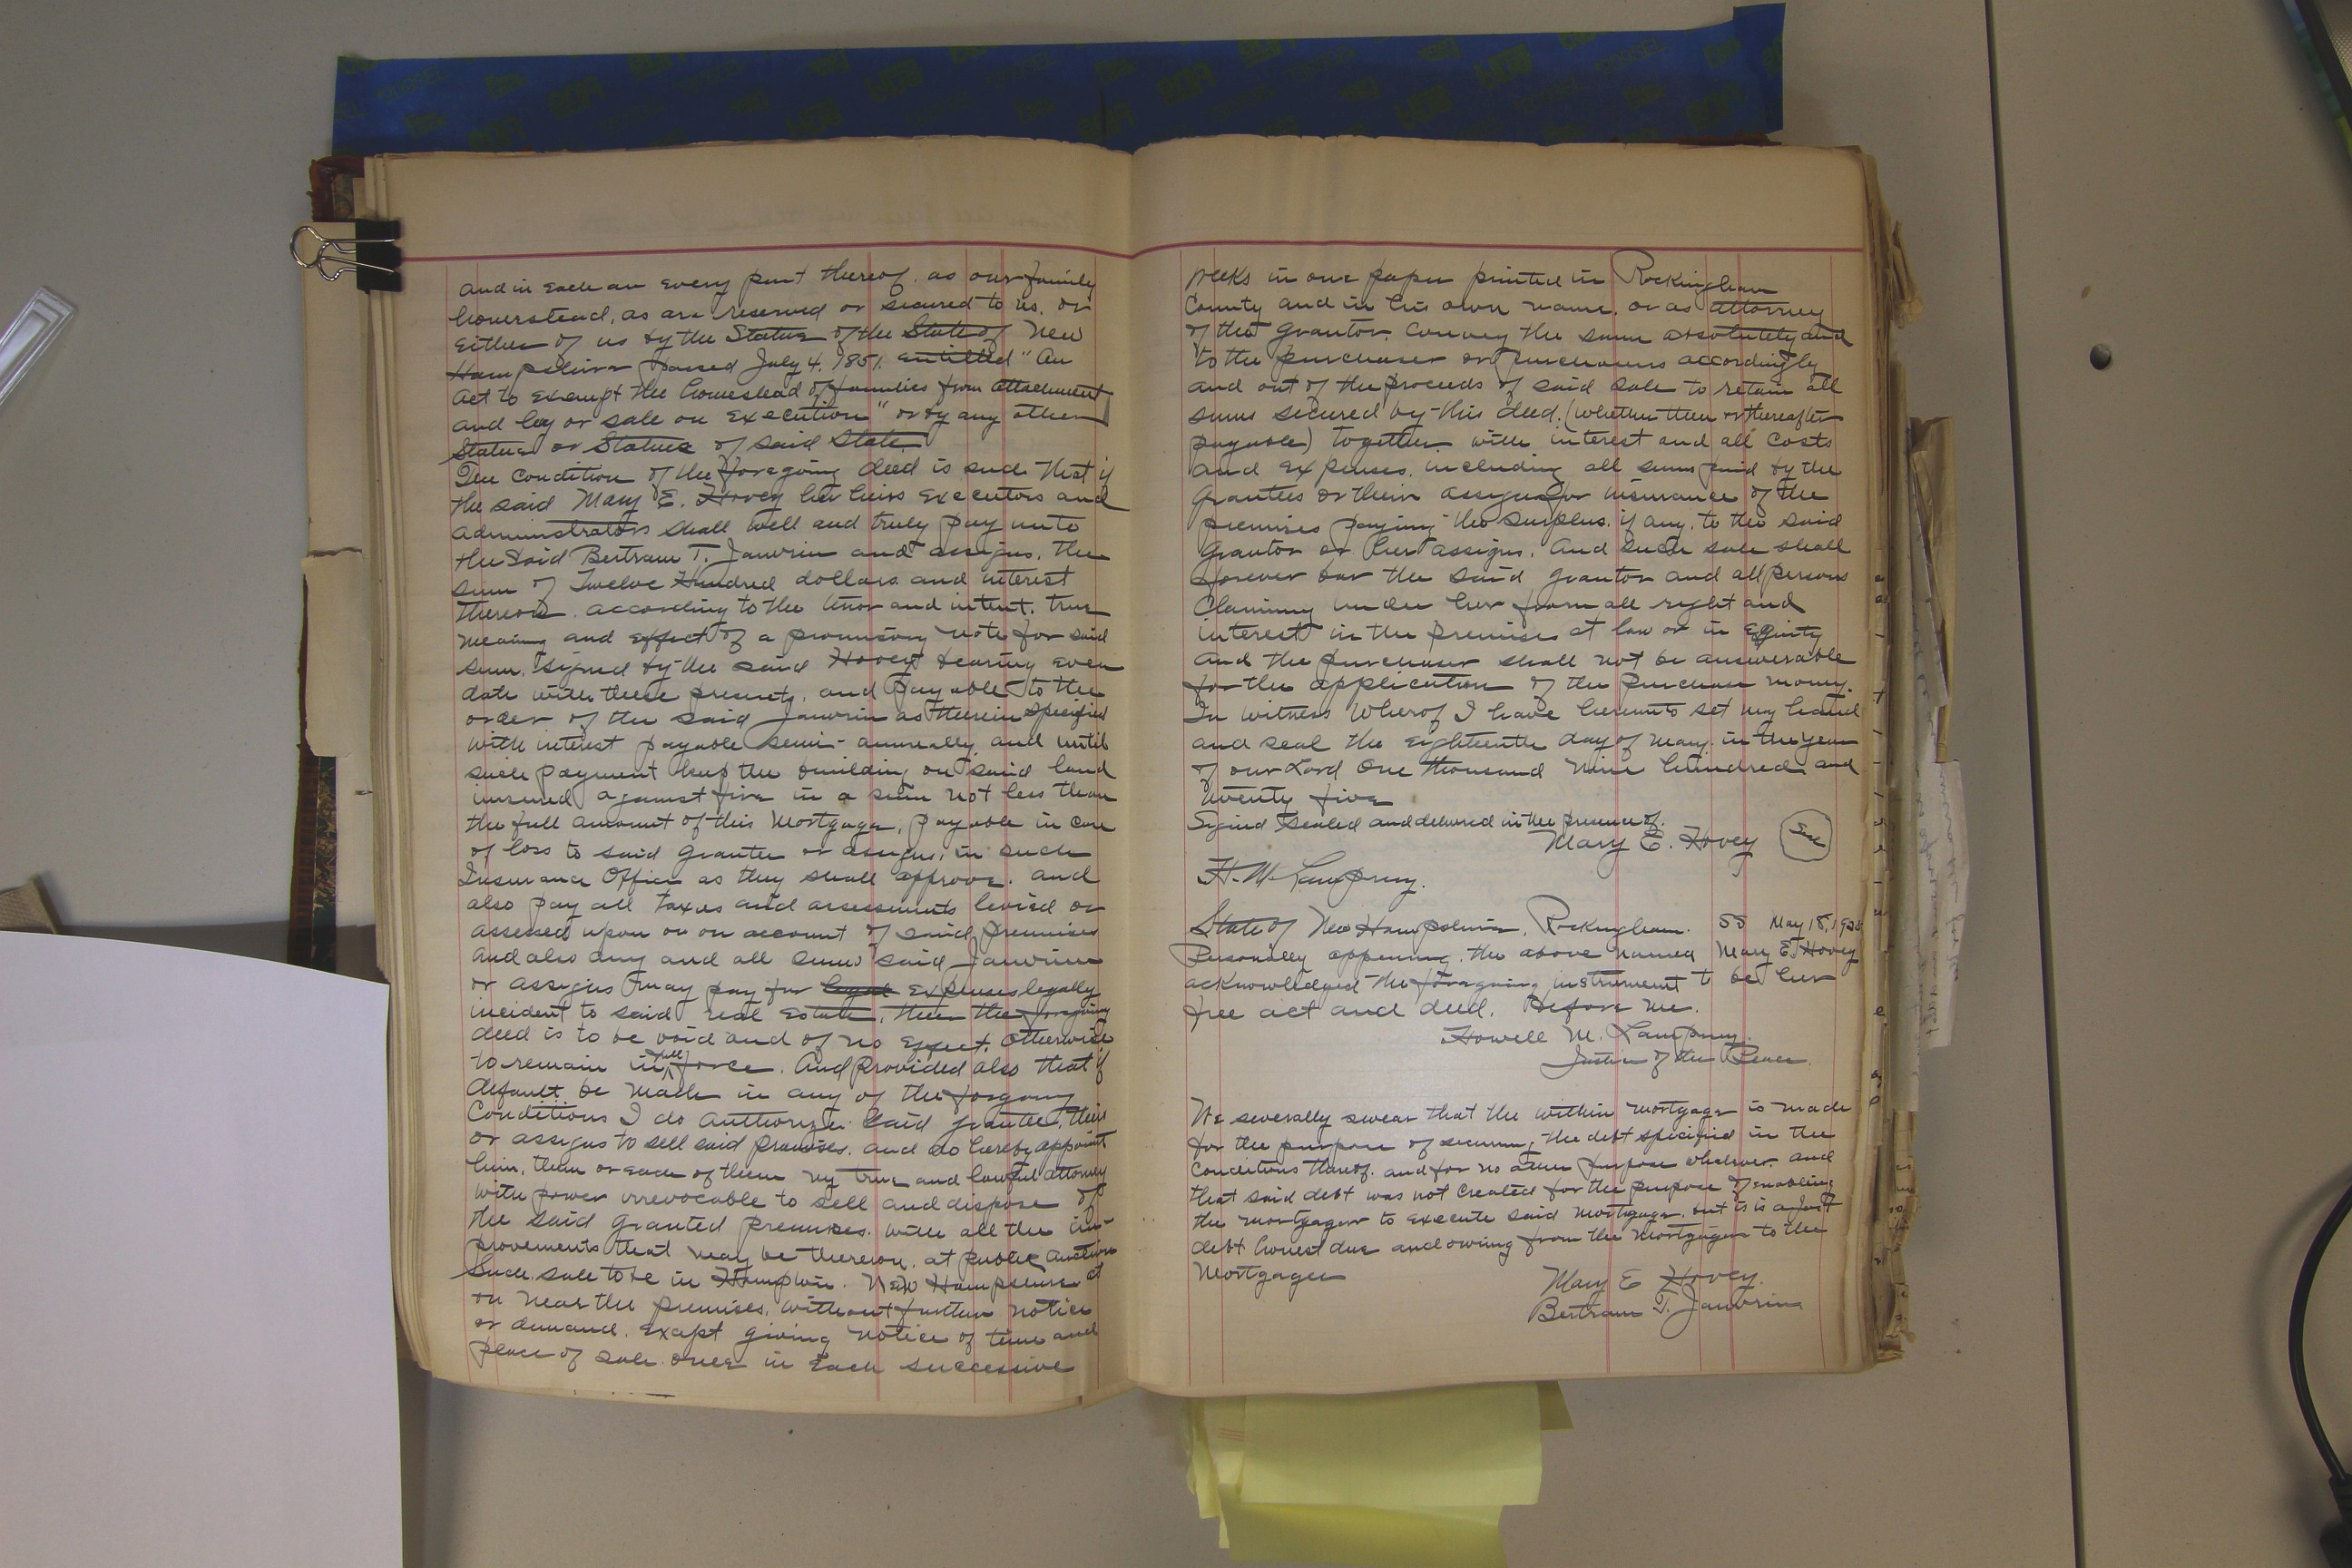 and in each an every part thereof. as our family
homerstead, as are reserved or secured to us. or
either of us by the Statue of the State of New
Hampshire passed July 4. 1851. entitled "An
act to exempt the homestead of families from attachment
and levy or sale on execution" or by any other
Statue or Statues of said State.
The condition of the foregoing deed is such that if
the said Mary E. Hovey her heirs executors and
administrators shall well and truly pay unto
the said Bertram T. Janvrin and assigns, the
sum of Twelve Hundred dollars and interest
thereon. according to the tenor and intent. true
meaning and effect of a promissory note for said
sum, signed by the said Hovey bearing even
date with these presents, and payable to the
order of the said Janvrin as therein specified
with interest payable semi-annually and until
such payment keep the building on said land
insured against fire in a sum not less than
the full amount of this Mortgage, payable in case
of loss to said grantee or assigns, in such
Insurance Office as they shall approve. and
also pay all taxes and assessments levied or
assessed upon or on account of said premises
and also any and all sums said Janvrin
or assigns may pay for legal expenses legally
incident to said real estate, then the foregoing
deed is to be void and of no effect. otherwise
to remain in full force. And Provided also that if
default be made in any of the forgoing
conditions I do authorize said grantee, their
or assigns to sell said premises. and do hereby appoint
him, them or each of them my true and lawful attorney
with power irrevocable to sell and dispose of
the said granted premises. with all the im-
provements that may be thereon. at public auction
Such sale to be in Hampton. New Hampshire at
or near the premises, without further notice
or demand. except giving notice of time and
place of sale once in each successive
weeks in one paper printed in Rockingham
County and in his own name. or as attorney
of the grantor. convey the same absolutely and
to the purchaser or purchasers accordingly
and out of the proceeds of said sale to retain all
sums secured by this deed. (whether then or thereafter
payable) together with interest and all costs
and expenses. including all sums paid by the
grantees or their assigns for insurance of the
premises paying the surplus. if any. to the said
grantor or her assigns. And such sale shall
forever bar the said grantor and all persons
claiming under her from all right and
interest in the premises at law or in Equity
and the purchaser shall not be answerable
for the application of the purchase money.
In witness Wherof I have hereunto set my hand
and seal the eighteenth day of May. in the year
of our Lord One thousand nine hundred and
twenty five
Signed sealed and delivered in the presence of.
Mary E. Hovey Seal
H. M. Lamprey.
State of New Hampshire. Rockingham. SS May 18, 1925
Personally appearing. the above named Mary E. Hovey
acknowledged the foregoing instrument to be her
free act and deed. Before me.
Howell M. Lamprey.
Justice of the Peace.
We severally swear that the within mortgage is made
for the purpose of securing the debt specified in the
conditions thereof. and for no other purpose whatever. and
that said debt was not created for the purpose of enabling
the mortgagor to execute said mortgage. but is is a just
debt honest due and owing from the mortgagor to the
Mortgagee
Mary E Hovey.
Bertram T. Janvrin